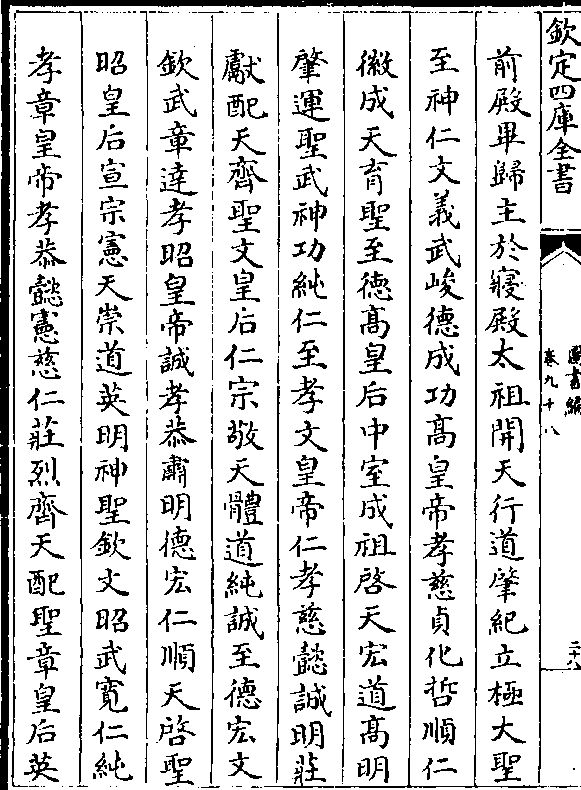 欽定四庫全書
圖書編
卷九十八
二十八
前殿畢歸主於寢殿太祖開天行道肇紀立極大聖
至神仁文義武峻德成功髙皇帝孝慈貞化哲順仁
徽成天育聖至徳髙皇后中室成祖啓天宏道髙明
肇運聖武神功純仁至孝文皇帝仁孝慈懿誠明莊
獻配天齊聖文皇后仁宗敬天體道純誠至德宏文
欽武章達孝昭皇帝誠孝恭肅明德宏仁順天啓聖
昭皇后宣宗憲天崇道英明神聖欽文昭武寛仁純
孝章皇帝孝恭懿憲慈仁莊烈齊天配聖章皇后英